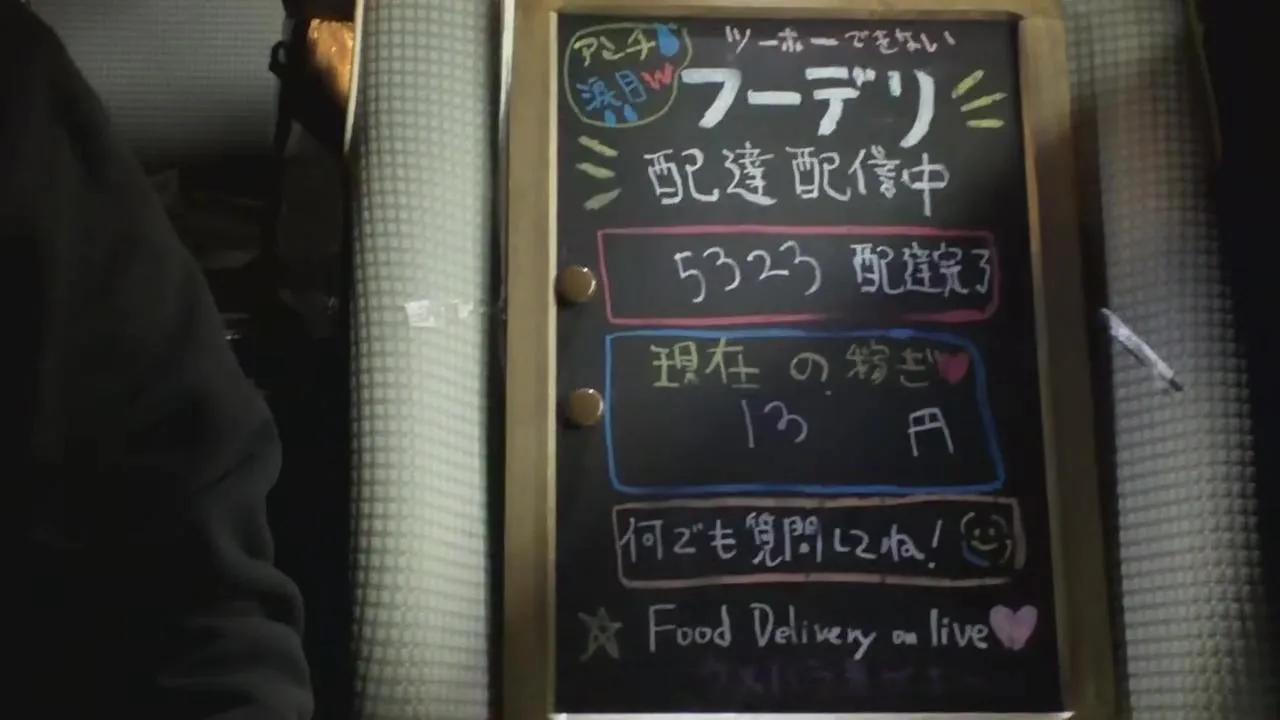 アンチ
涙目w
ツーホーできない
フーデリ
配達配信中
5323 配達完了
現在の稼ぎ
13 円
何でも質問してね!
Food Delivery on live